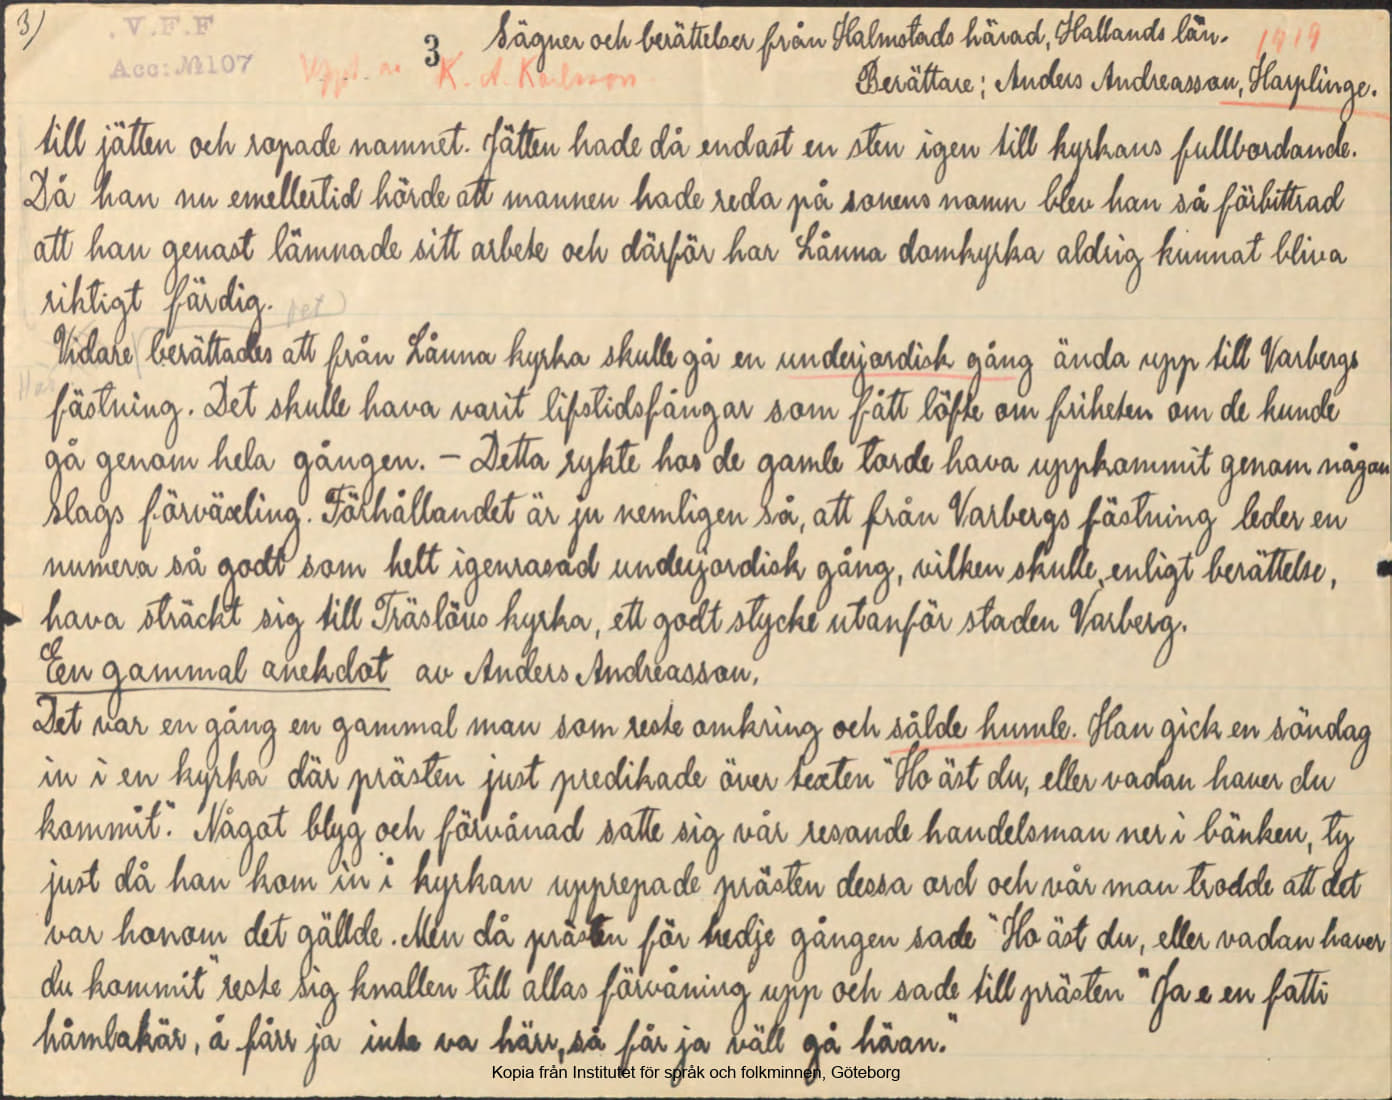 3)
V.F.F
Acc: № 1107
3
Sägner och berättelser från Halmstads härad, Hallands län.
1919
Uppt. av K. A. Karlsson
Berättare; Anders Andreasson, Harplinge.
till jätten och ropade namnet. Jätten hade då endast en sten igen till kyrkans fullbordande.
Då han nu emellertid hörde att mannen hade reda på sonens namn blev han så förbittrad
att han genast lämnade sitt arbete och därför har Lånna domkyrka aldrig kunnat bliva
riktigt färdig.
Vidare berättades att från Lånna kyrka skulle gå en underjordisk gång ända upp till Varbergs
fästning. Det skulle hava varit lifstidsfångar som fått löfte om friheten om de kunde
gå genom hela gången. – Detta rykte hos de gamle torde hava uppkommit genom någon
slags förväxling. Förhållandet är ju nemligen så, att från Varbergs fästning leder en
numera så godt som helt igenrasad underjordisk gång, vilken skulle, enligt berättelse,
hava sträckt sig till Träslövs kyrka, ett godt stycke utanför staden Varberg.
En gammal anekdot av Anders Andreasson,
Det var en gång en gammal man som reste omkring och sålde humle. Han gick en söndag
in i en kyrka där prästen just predikade över texten "Ho äst du, eller vadan haver du
kommit". Något blyg och förvånad satte sig vår resande handelsman ner i bänken, ty
just då han kom in i kyrkan upprepade prästen dessa ord och vår man trodde att det
var honom det gällde. Men då prästen för tredje gången sade "Ho äst du, eller vadan haver
du kommit" reste sig knallen till allas förvåning upp och sade till prästen "Ja e en fatti
håmlakär, å fårr ja inte va härr, så får ja väll gå häan."
Kopia från Institutet för språk och folkminnen, Göteborg